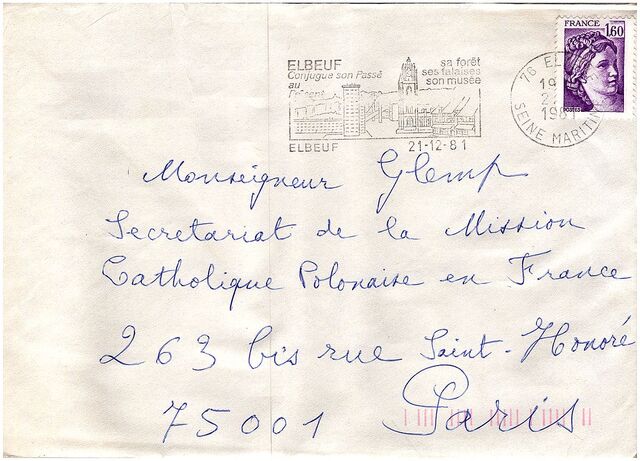 FRANCE
1,60
POSTES
ELBEUF
Conjugue son Passé
au
Présent
sa forêt
ses falaises
son musée
ELBEUF
21-12-81
76
19
1981
SEINE MARITIME
Monseigneur Glemp
Secretariat de la Mission
Catholique Polonaise en France
263 bis rue Saint-Honoré
75001 Paris